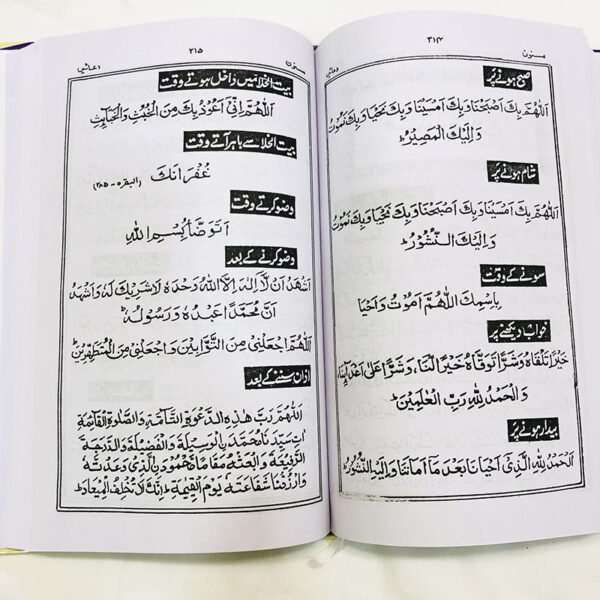 مسنون ۳۱۴ دعائیں
صبح ہونے پر
اَللّٰهُمَّ بِكَ اَصْبَحْنَا وَبِكَ اَمْسَيْنَا وَبِكَ نَحْيَا وَبِكَ نَمُوْتُ
وَاِلَيْكَ الْمَصِيْرُ ؕ
شام ہونے پر
اَللّٰهُمَّ بِكَ اَمْسَيْنَا وَبِكَ اَصْبَحْنَا وَبِكَ نَحْيَا وَبِكَ نَمُوْتُ
وَاِلَيْكَ النُّشُوْرُ ؕ
سونے کے وقت
بِاسْمِكَ اللّٰهُمَّ اَمُوْتُ وَاَحْيَا
خواب دیکھنے پر
خَيْرًا تَلْقَاهُ وَشَرًّا تَوَقَّاهُ خَيْرًا لَّنَا، وَشَرًّا عَلٰى اَعْدَآئِنَا،
وَالْحَمْدُ لِلّٰهِ رَبِّ الْعٰلَمِيْنَ ؕ
بیدار ہونے پر
اَلْحَمْدُ لِلّٰهِ الَّذِىْٓ اَحْيَانَا بَعْدَ مَآ اَمَاتَنَا وَاِلَيْهِ النُّشُوْرُ ؕ
مسنون ۳۱۵ دعائیں
بیت الخلا میں داخل ہوتے وقت
اَللّٰهُمَّ اِنِّىْٓ اَعُوْذُ بِكَ مِنَ الْخُبُثِ وَالْخَبَآئِثِ
بیت الخلا سے باہر آتے وقت
غُفْرَانَكَ (البقرہ - ۲۸۵)
وضو کرتے وقت
اَتَوَضَّأُ بِسْمِ اللّٰهِ
وضو کرنے کے بعد
اَشْهَدُ اَنْ لَّآ اِلٰهَ اِلَّا اللّٰهُ وَحْدَهٗ لَا شَرِيْكَ لَهٗ وَاَشْهَدُ
اَنَّ مُحَمَّدًا عَبْدُهٗ وَرَسُوْلُهٗ ؕ
اَللّٰهُمَّ اجْعَلْنِىْ مِنَ التَّوَّابِيْنَ وَاجْعَلْنِىْ مِنَ الْمُتَطَهِّرِيْنَ ؕ
اذان سننے کے بعد
اَللّٰهُمَّ رَبَّ هٰذِهِ الدَّعْوَةِ التَّآمَّةِ وَالصَّلٰوةِ الْقَآئِمَةِ
اٰتِ سَيِّدَنَا مُحَمَّدَ ۨ الْوَسِيْلَةَ وَالْفَضِيْلَةَ وَالدَّرَجَةَ
الرَّفِيْعَةَ وَابْعَثْهُ مَقَامًا مَّحْمُوْدَ ۨ الَّذِىْ وَعَدْتَّهٗ
وَارْزُقْنَا شَفَاعَتَهٗ يَوْمَ الْقِيٰمَةِ ؕ اِنَّكَ لَا تُخْلِفُ الْمِيْعَادَ ؕ